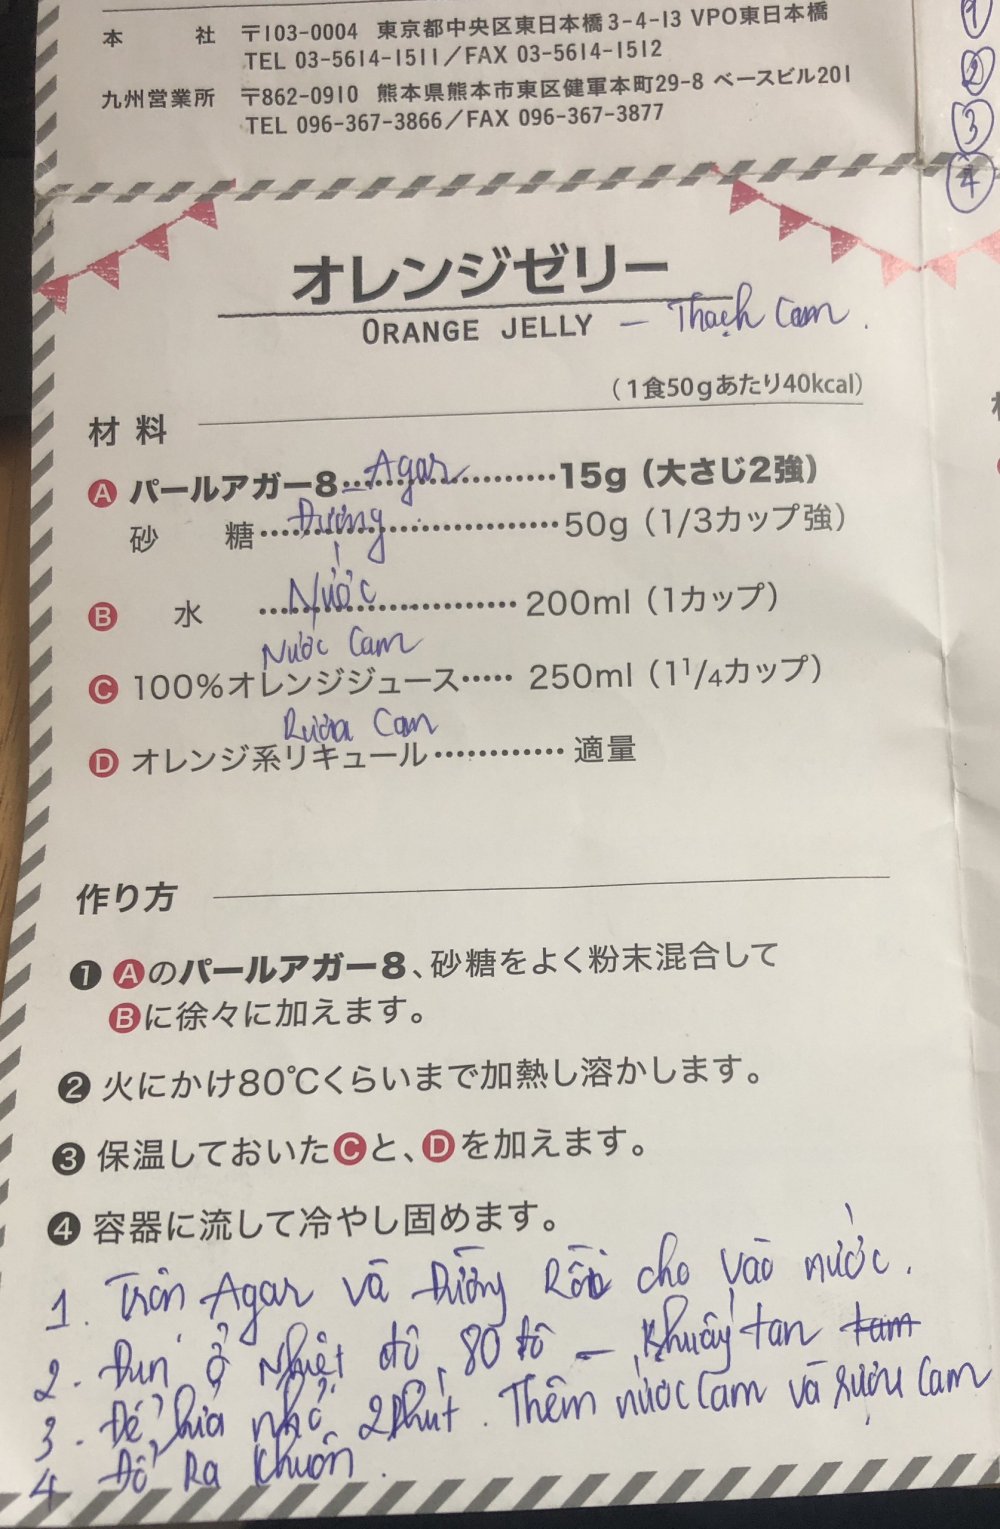 本 社 〒103-0004 東京都中央区東日本橋3-4-13 VPO東日本橋
TEL 03-5614-1511／FAX 03-5614-1512
九州営業所 〒862-0910 熊本県熊本市東区健軍本町29-8 ベースビル201
TEL 096-367-3866／FAX 096-367-3877
①
②
③
④
オレンジゼリー
ORANGE JELLY – Thạch Cam.
（1食50gあたり40kcal）
材料
Agar
Ⓐ パールアガー8……………………15g（大さじ2強）
Đường
砂 糖……………………………50g（1/3カップ強）
Nước
Ⓑ 水 ……………………… 200ml（1カップ）
Nước Cam
Ⓒ 100%オレンジジュース…… 250ml（1 1/4カップ）
Rượu Cam
Ⓓ オレンジ系リキュール………… 適量
作り方
❶ Ⓐのパールアガー8、砂糖をよく粉末混合して
Ⓑに徐々に加えます。
❷ 火にかけ80℃くらいまで加熱し溶かします。
❸ 保温しておいたⒸと、Ⓓを加えます。
❹ 容器に流して冷やし固めます。
1. Trộn Agar và Đường Rồi cho vào nước.
2. Đun ở Nhiệt độ 80 độ – Khuấy tan
3. Để lửa nhỏ 2 Phút. Thêm nước Cam và rượu Cam
4 Đổ Ra Khuôn.